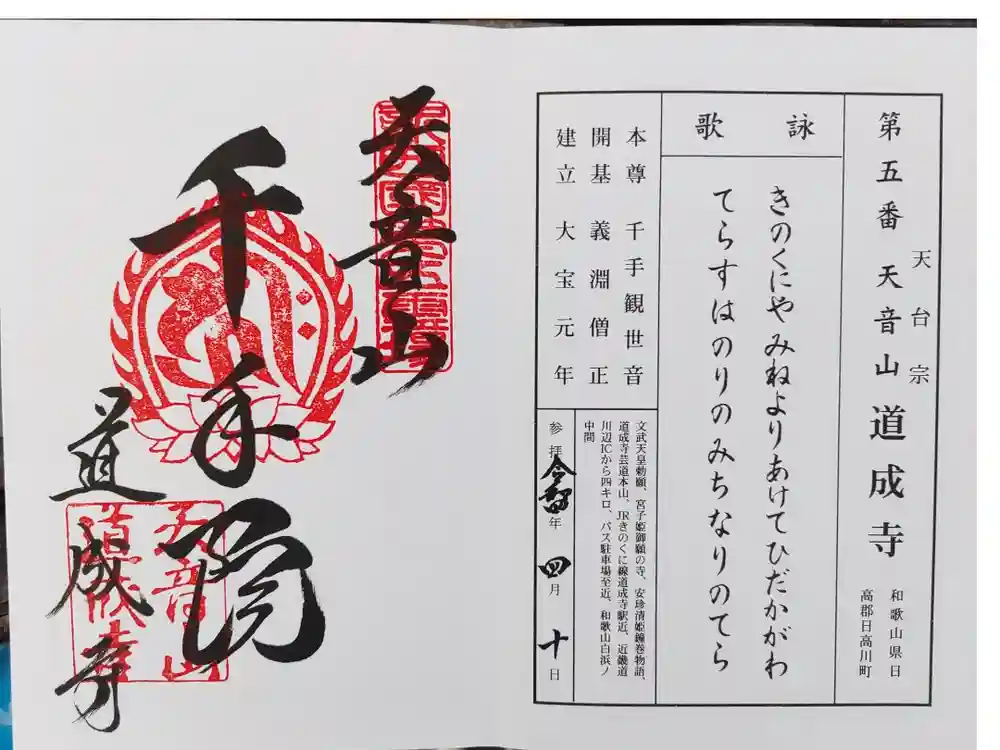 第五番 天音山 道成寺
天台宗
和歌山県日
高郡日高川町
詠歌
きのくにや みねよりあけてひだかがわ
てらすはのりの みちなりのてら
本尊 千手観世音
開基 義淵僧正
建立 大宝元年
文武天皇勅願、宮子姫御願の寺、安珍清姫鐘巻物語、
道成寺芸道本山、JRきのくに線道成寺駅近、近畿道
川辺ICから四キロ、バス駐車場至近、和歌山白浜ノ
中間
参拝 令和四年 四月 十日
天音山
千手院
道成寺
天音山
道成寺